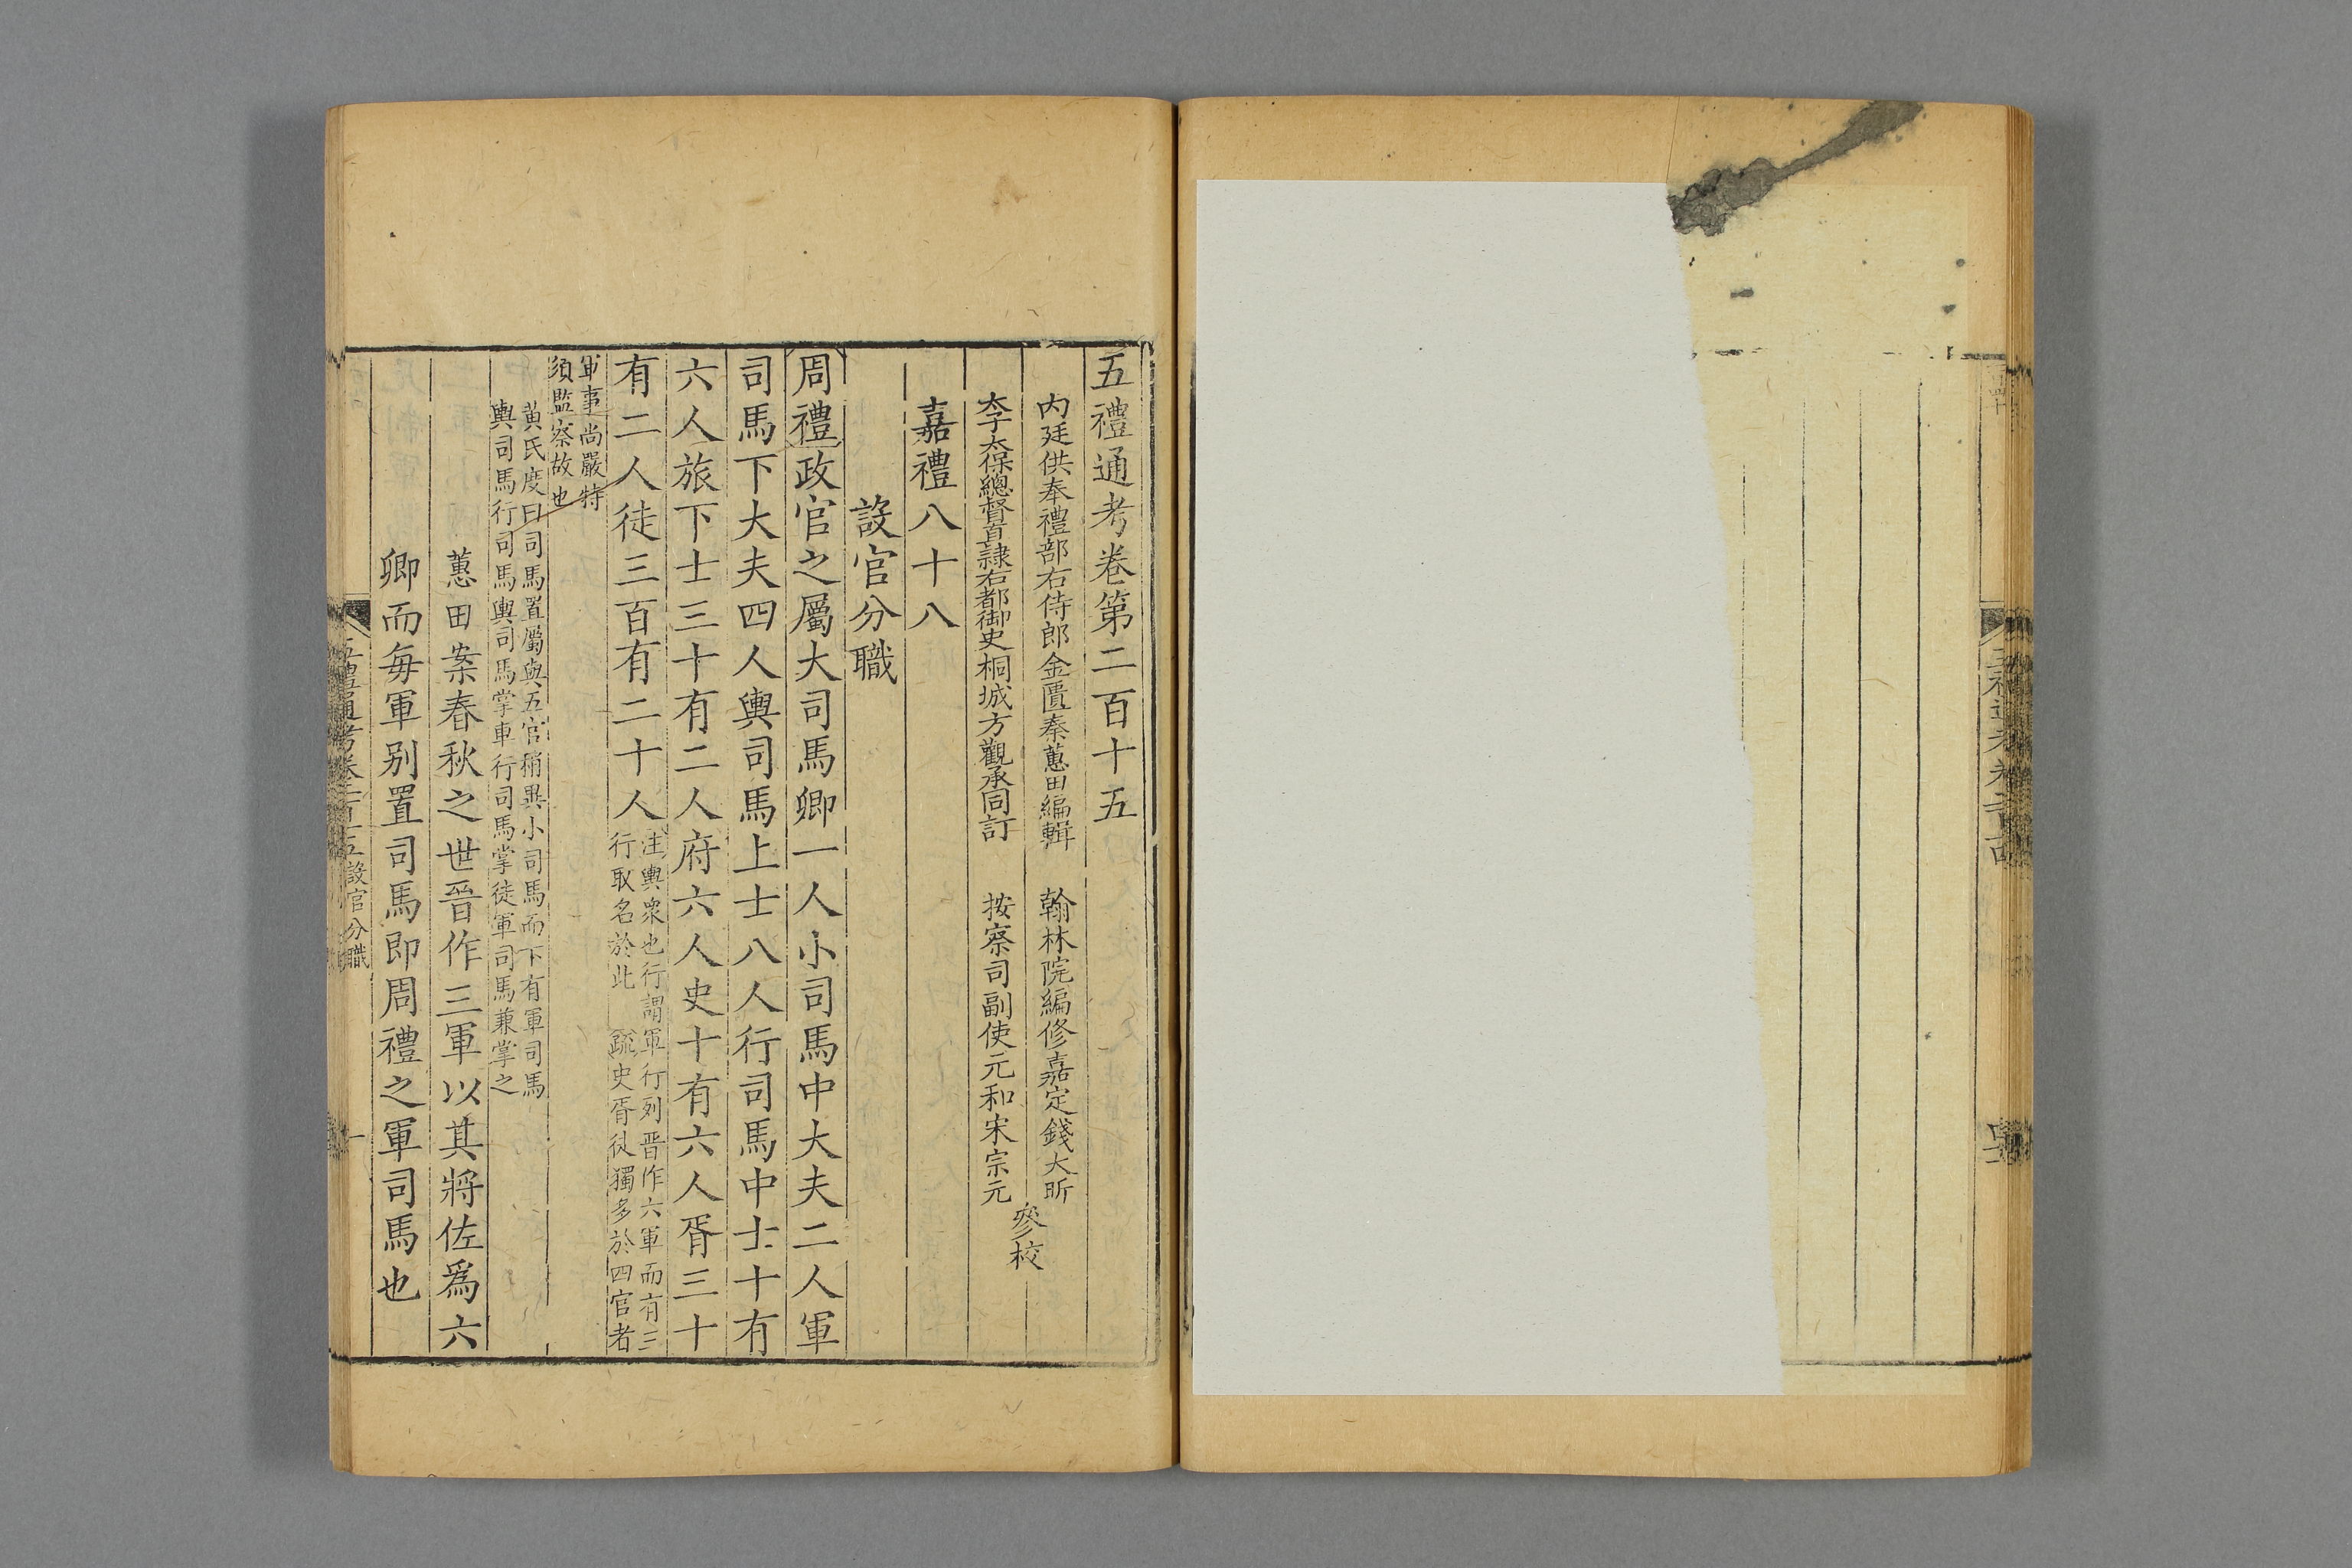 五禮通考卷第二百十五
內廷供奉禮部右侍郎金匱秦蕙田編輯 翰林院編修嘉定錢大昕
李太保總督直隸右都御史桐城方觀承同訂 按察司副使元和宋宗元
參校
嘉禮八十八
設官分職
周禮政官之屬大司馬卿一人小司馬中大夫二人軍
司馬下大夫四人輿司馬上士八人行司馬中士十有
六人旅下士三十有二人府六人史十有六人胥三十
有二人徒三百有二十人
注輿衆也行謂軍行列晋作六軍而有三
行取名於此 疏史胥徒獨多於四官者
軍事尚嚴特
須監察故也
黃氏度曰司馬置屬與五官稍異小司馬而下有軍司馬
輿司馬行司馬輿司馬掌車行司馬掌徒軍司馬兼掌之
蕙田案春秋之世晉作三軍以其將佐爲六
卿而每軍别置司馬即周禮之軍司馬也
五禮通考卷二百十五 設官分職 一